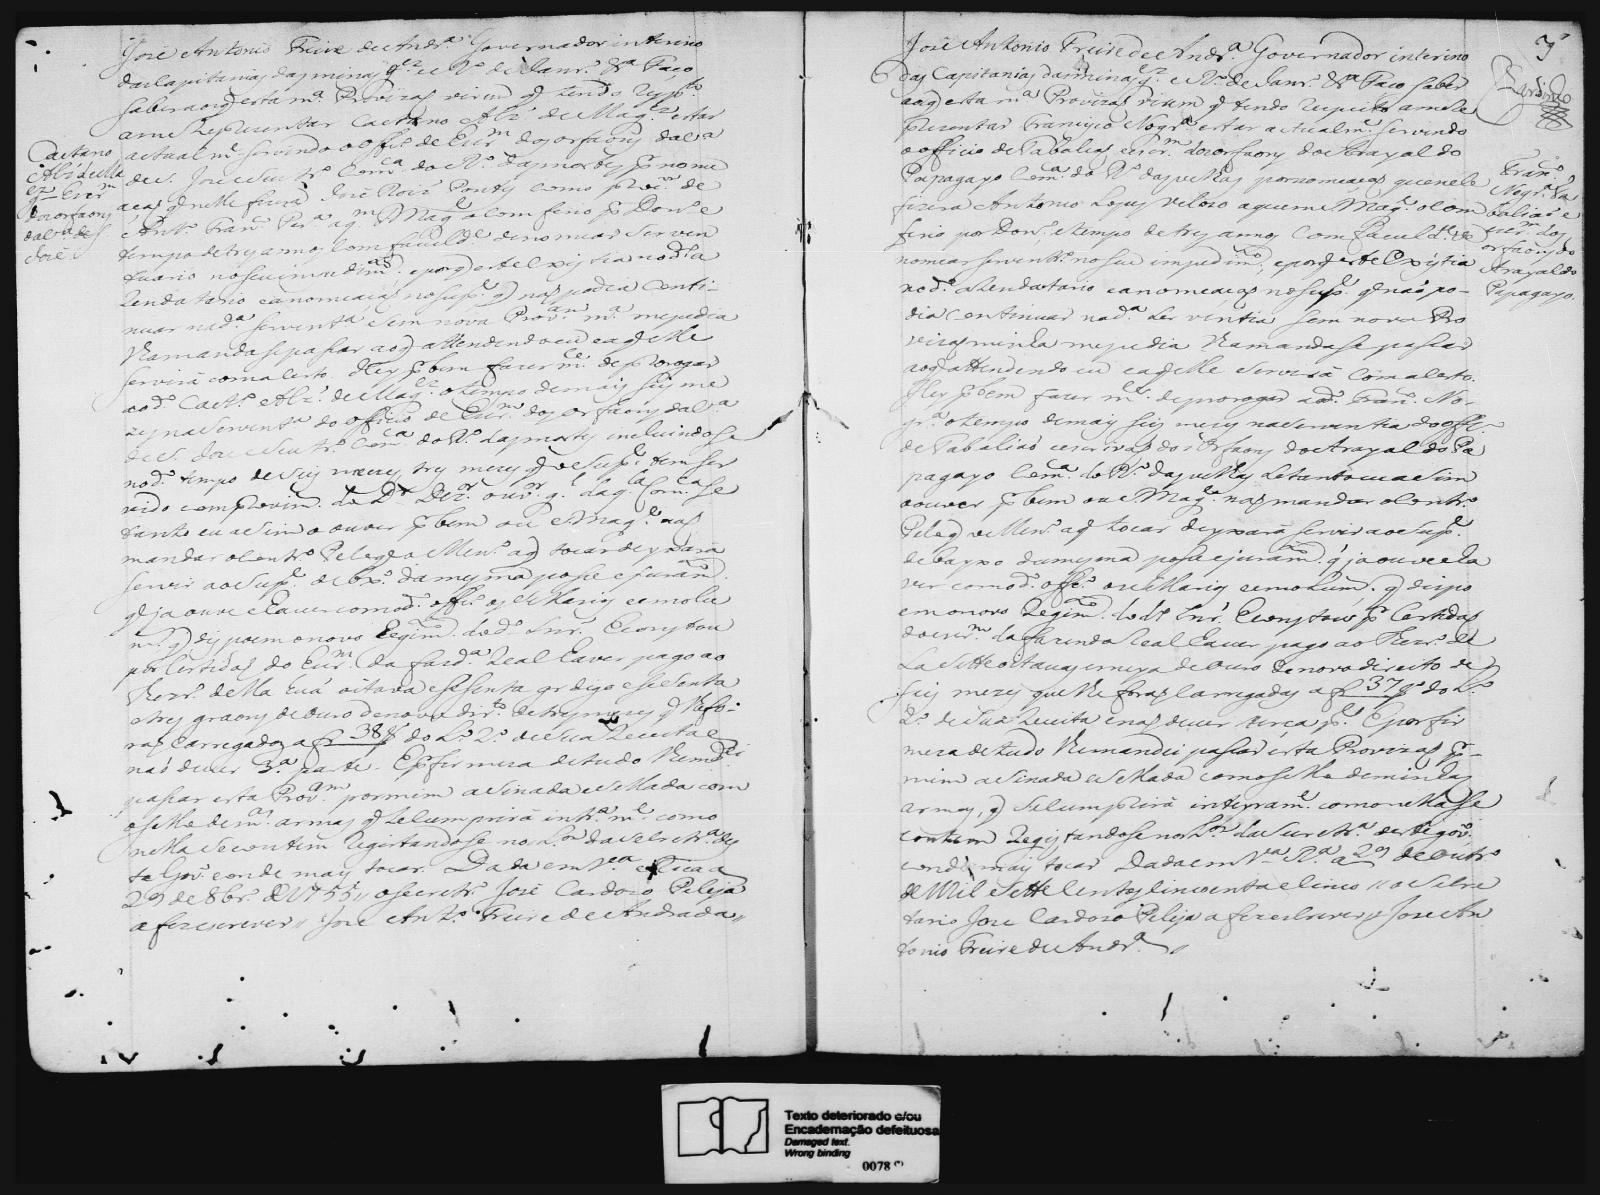 Caetano
Alz de Ma
gz Escr.m
dos orfaons
da V.a de S.
José
José Antonio Freire de Andr.a Governador interino
das Capitanias das minas g.es e R.o de Janr.o &.a Faço
saber aos q esta m.a Provizaõ virem q tendo resp.to
ame Reprezentar Caetano Alz' de Mag.es estar
actual m.te servindo o off.o de Escr.m dos orfaons da V.a
de S. José e Seu tr.o Com.ca do R.o das mortes p nome
açaõ q nelle fizera José Roiz' Pontes como proc.or de
Ant.o Fran.co Per.a aq.m S. Mag.e o comferio p Don.o e
tempo de tres annos com faculd.e de nomear serven
tuario no seu impedim.to e porq este Exzistia no d.a
Rendatario e anomeaçaõ no sup.e q naõ podia conti-
nuar na d.a serventa sem nova Prov.am m.a me pedia
lha mandase pasar ao q attendendo eu e aq elle
servirá com acerto. Hey p bem fazer m.ce de prorogar
ao d.o Caet.o Alz' de Mag.es o tempo de mais seis me
zes na Servent.a do officio de Escr.m dos orfaons da V.a
de S. Jozé e Seu tr.o Com.ca do R.o das mortes incluindose
no d.o tempo de seis mezes, tres mezes q o Sup.e tem ser
vido com provim.to do D.r Dez.or ouv.or g.l da q.la Com.ca se
tanto eu asim o ouver p bem ou S. Mag.e naõ
mandar o contr.o Pelo q o Men.o aq tocar deyxará
servir ao Sup.e debx.o da mesma pose e juram.to
q ja ouve e haver com o d.o off.o os selarios e emolu
m.tos q dispoem o novo Regim.to do d.o Snr. E constou
por Certidaõ do Escr.m da fazd.a Real haver pago ao
Thezr.o della huá oitava e sesenta gr digo e sesenta
e tres graons de ouro de novo dir.to de tres mezes q lhe fo-
raõ carregados a f 38 do L.o 2.o de sua Receita e
naõ dever 3.a parte. E p firmeza de tudo lhe mdei
pasar esta Prov.am por mim asinada e Sellada com
o sello de m.as armas q se cumprirá intr.a m.te como
nella se contem registandose no L.os da Secretr.a des
te Gov.o e onde mais tocar. Dada em V.a Rica a
29 de 8br.o de 1755 // o secretr.o José Cardozo Peleja
a fez escrever // José Ant.o Freire de Andrada //
3
José Antonio Freire de Andr.a Governador interino
das Capitanias das minas g.es e R.o de Janr.o &.a Faço saber
aos q esta m.a Provizaõ virem q tendo respeito ame Re
prezentar Francisco Nogr.a estar actualm.te servindo
o officio de Tabaliaõ e Escr.m dos orfaons do Arrayal do
Papagayo Com.ca do R.o das velhas por nomeaçaõ que nele
fizera Antonio Lopes Velozo aquem S. Mag.e o com
ferio por Don.o, e tempo de tres annos com faculd.e de
nomear serventr.o no seu impedim.to, e porq este Exzistia
no d.o a Rendatario e a nomeaçaõ no sup.e q naõ po-
dia continuar na d.a serventia sem nova Pro
vizaõ minha me pedia lha mandase pasar
ao q attendendo eu e aq elle servirá com acerto.
Hey p bem fazer m.ce de prorogar ao d.o Fran.co No-
gr.a o tempo de mais seis mezes na serventia do off.o
de Tabaliaõ e escrivaõ dos Orfaons do Arrayal do Pa
pagayo Com.ca do R.o das velhas se tanto eu asim
o ouver p bem ou S. Mag.e naõ mandar o contr.o
Pelo q o Men.o aq tocar deyxará servir ao Sup.e
debayxo da mesma pose e juram.to q ja ouve e ha
ver com o d.o off.o os selarios e emolum.tos q dispo
em o novo Regim.to do d.o Snr. E constou p Certidaõ
do escr.m da fazenda Real haver pago ao Thezr.o del
la sette oitavas e meya de ouro de novo direito de
seis mezes que lhe foraõ carregadas a f 37 do L.o
2.o de sua Receita e naõ dever terça p.te E por fir
meza de tudo lhe mandei pasar esta Provizaõ p-
mim asinada e Sellada com o sello de minhas
armas, q se cumprirá integram.te como nella se
contem Registandose nos L.os da Secretr.a deste gov.o
e onde mais tocar Dada em V.a R.a a 29 de outr.o
de Mil e Sette Centos Cincoenta e Cinco // o Secre
tario José Cardozo Peleja a fez escrever // José An
tonio Freire de Andr.a //
Fran.co
Nogr.a Ta
baliaõ e
escr.m dos
orfaons do
Arayal do
Papagayo.
Texto deteriorado e/ou
Encadernação defeituosa
Damaged text.
Wrong binding
0078 (*)